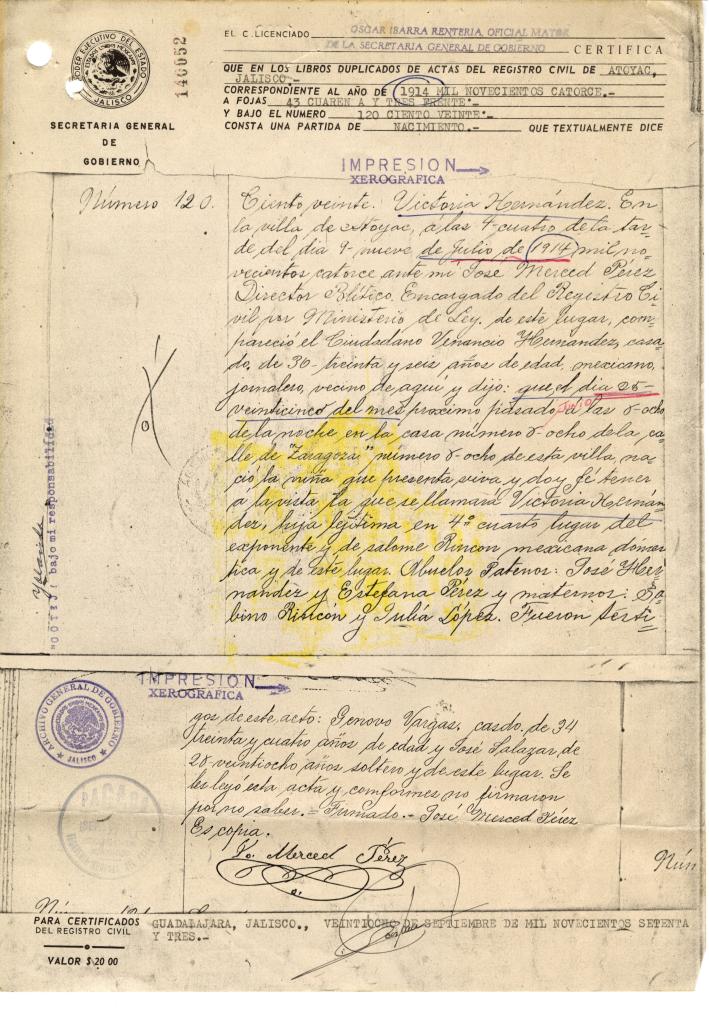 PODER EJECUTIVO DEL ESTADO
ESTADOS UNIDOS MEXICANOS
JALISCO
SECRETARIA GENERAL
DE
GOBIERNO
140052
EL C. LICENCIADO OSCAR IBARRA RENTERIA, OFICIAL MAYOR
DE LA SECRETARIA GENERAL DE GOBIERNO CERTIFICA
QUE EN LOS LIBROS DUPLICADOS DE ACTAS DEL REGISTRO CIVIL DE ATOYAC,
JALISCO.-
CORRESPONDIENTE AL AÑO DE 1914 MIL NOVECIENTOS CATORCE.-
A FOJAS 43 CUAREN A Y TRES FRENTE.-
Y BAJO EL NUMERO 120 CIENTO VEINTE.-
CONSTA UNA PARTIDA DE NACIMIENTO.- QUE TEXTUALMENTE DICE
IMPRESION
XEROGRAFICA
Número 120.
Ciento veinte. Victoria Hernández. En
la villa de Atoyac, á las 4-cuatro de la tar-
de del dia 9- nueve de Julio de 1914 mil no-
vecientos catorce ante mi José Merced Pérez
Director Político, Encargado del Registro Ci-
vil por Ministerio de Ley, de este lugar, com-
pareció el Ciudadano Venancio Hernández, casa-
do, de 36- treinta y seis años de edad, mexicano,
jornalero, vecino de aquí y dijo: que el dia 25-
veinticinco del mes próximo pasado, Julio las 8-ocho
de la noche en la casa número 8-ocho de la ca-
lle de "Zaragoza" número 8-ocho de esta villa, na-
ció la niña que presenta viva y doy fé tener
á la vista, la que se llamará Victoria Hernán-
dez, hija legítima en 4º cuarto lugar del
exponente y de salome Rincon mexicana domes-
tica y de este lugar. Abuelos Paternos: José Her-
nandez y Estefana Pérez y maternos: Sa-
bino Rincón y Julia López. Fueron testi-
"COTEJ" bajo mi responsabilidad
IMPRESION
XEROGRAFICA
ARCHIVO GENERAL DE GOBIERNO
JALISCO
gos de este acto: Genovo Vargas, casdo. de 34
treinta y cuatro años de edad y José Salazar, de
28 veintiocho años soltero y de este lugar. Se
les leyó esta acta y comformes no firmaron
por no saber.= Firmado.- José Merced Pérez
Es copia.
Jo. Merced Pérez
Nún
PARA CERTIFICADOS
DEL REGISTRO CIVIL
VALOR $20 00
GUADALAJARA, JALISCO., VEINTIOCHO DE SEPTIEMBRE DE MIL NOVECIENTOS SETENTA
Y TRES.-